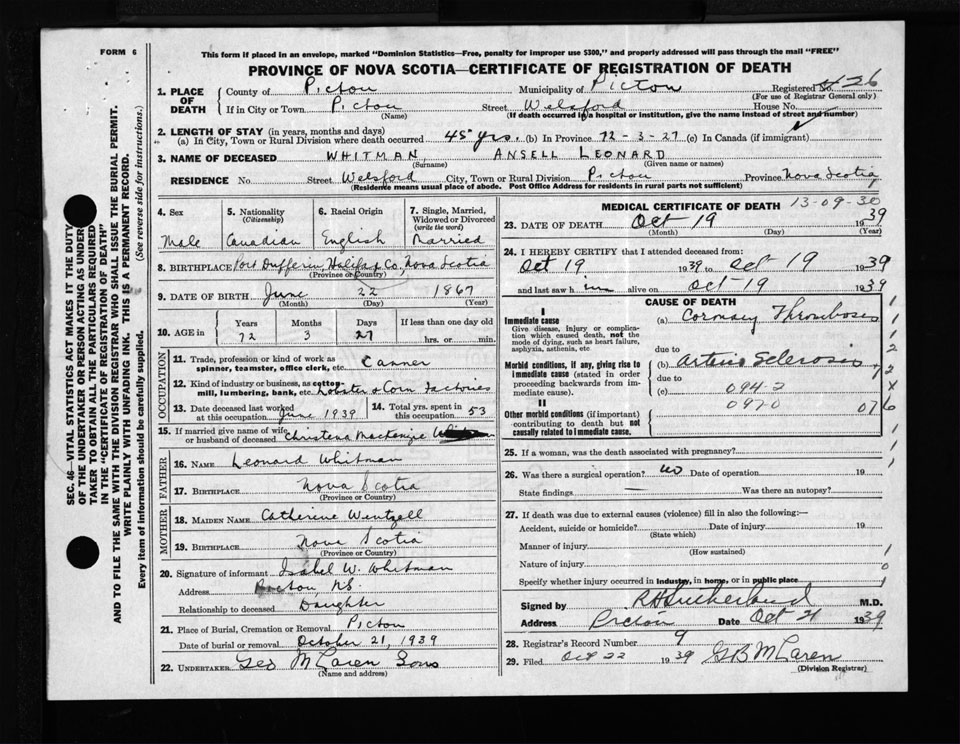 FORM 6
This form if placed in an envelope, marked "Dominion Statistics—Free, penalty for improper use $300," and properly addressed will pass through the mail "FREE"
PROVINCE OF NOVA SCOTIA—CERTIFICATE OF REGISTRATION OF DEATH
SEC. 46—VITAL STATISTICS ACT MAKES IT THE DUTY
OF THE UNDERTAKER OR PERSON ACTING AS UNDER
TAKER TO OBTAIN ALL THE PARTICULARS REQUIRED
IN THE "CERTIFICATE OF REGISTRATION OF DEATH"
AND TO FILE THE SAME WITH THE DIVISION REGISTRAR WHO SHALL ISSUE THE BURIAL PERMIT.
WRITE PLAINLY WITH UNFADING INK. THIS IS A PERMANENT RECORD.
Every item of information should be carefully supplied. (See reverse side for instructions.)
1. PLACE OF DEATH
County of Pictou Municipality of Pictou Registered No. 426
(For use of Registrar General only)
If in City or Town Pictou Street Welsford House No.
(Name) (If death occurred in a hospital or institution, give the name instead of street and number)
2. LENGTH OF STAY (in years, months and days)
(a) In City, Town or Rural Division where death occurred 45 yrs. (b) In Province 72-3-27 (c) In Canada (if immigrant)
3. NAME OF DECEASED WHITMAN, ANSELL LEONARD
(Surname) (Given name or names)
RESIDENCE No. Street Welsford City, Town or Rural Division Pictou Province Nova Scotia
(Residence means usual place of abode. Post Office Address for residents in rural parts not sufficient)
4. Sex 5. Nationality (Citizenship) 6. Racial Origin 7. Single, Married, Widowed or Divorced (write the word)
Male Canadian English Married
8. BIRTHPLACE Port Dufferin, Halifax Co, Nova Scotia
(Province or Country)
9. DATE OF BIRTH June 22 1867
(Month) (Day) (Year)
10. AGE in Years Months Days If less than one day old
72 3 27 hrs. or min.
OCCUPATION
11. Trade, profession or kind of work as spinner, teamster, office clerk, etc. Canner
12. Kind of industry or business, as cotton mill, lumbering, bank, etc. Lobster & Corn Factories
13. Date deceased last worked at this occupation June 1939 14. Total yrs. spent in this occupation 53
15. If married give name of wife or husband of deceased Christena Mackenzie
FATHER
16. NAME Leonard Whitman
17. BIRTHPLACE Nova Scotia
(Province or Country)
MOTHER
18. MAIDEN NAME Catherine Wentzell
19. BIRTHPLACE Nova Scotia
(Province or Country)
20. Signature of informant Isabel W. Whitman
Address Pictou, N.S.
Relationship to deceased Daughter
21. Place of Burial, Cremation or Removal Pictou
Date of burial or removal October 21, 1939
22. UNDERTAKER Geo McLaren Sons
(Name and address)
MEDICAL CERTIFICATE OF DEATH 13-09-30
23. DATE OF DEATH Oct 19 1939
(Month) (Day) (Year)
24. I HEREBY CERTIFY that I attended deceased from:
Oct 19 1939 to Oct 19 1939
and last saw him alive on Oct-19 1939
CAUSE OF DEATH
I
Immediate cause (a) Coronary Thrombosis
Give disease, injury or complication which caused death, not the mode of dying, such as heart failure, asphyxia, asthenia, etc
due to
Morbid conditions, if any, giving rise to immediate cause (stated in order proceeding backwards from immediate cause).
(b) Arterio Sclerosis
due to
(c) 094-2
II
Other morbid conditions (if important) contributing to death but not causally related to immediate cause.
097-0 076
25. If a woman, was the death associated with pregnancy?
26. Was there a surgical operation? no Date of operation 19
State findings — Was there an autopsy?
27. If death was due to external causes (violence) fill in also the following:—
Accident, suicide or homicide? Date of injury 19
(State which)
Manner of injury
(How sustained)
Nature of injury
Specify whether injury occurred in Industry, in home, or in public place
Signed by R H Sutherland M.D.
Address Pictou Date Oct 21 1939
28. Registrar's Record Number 9
29. Filed Oct 22 1939 G B McLaren
(Division Registrar)